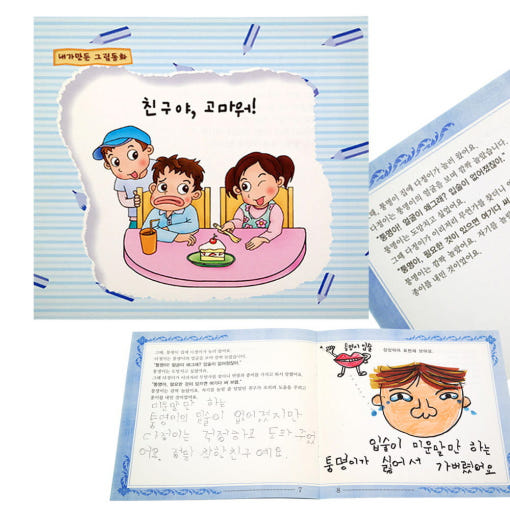 내가만든 그림동화
친구야, 고마워!
그때, 퉁명이 집에 다정이가 놀러 왔어요.
다정이는 퉁명이의 얼굴을 보며 깜짝 놀랐습니다.
"퉁명아! 얼굴이 왜그래? 입술이 없어졌잖아."
퉁명이는 도망치고 싶었어요.
그때 다정이가 이리저리 무언가를 찾더니
"퉁명아, 필요한 것이 있으면 여기다 써
퉁명이는 깜짝 놀랐어요. 자기를 놀릴
종이를 내민 것이었어요.
그때, 퉁명이 집에 다정이가 놀러 왔어요.
다정이는 퉁명이의 얼굴을 보며 깜짝 놀랐습니다.
"퉁명아! 얼굴이 왜그래? 입술이 없어졌잖아."
퉁명이는 도망치고 싶었어요.
그때 다정이가 이리저리 무언가를 찾더니 연필과 종이를 가지고 와서 말했어요.
"퉁명아, 필요한 것이 있으면 여기다 써 보렴."
퉁명이는 깜짝 놀랐어요. 자기를 놀릴 줄 알았던 친구가 오히려 도움을 주려고
종이를 내민 것이었어요.
미운말만 하는
퉁명이의 입술이 없어졌지만
다정이는 걱정하고 도와 주었
어요. 정말 착한친구 예요.
7
퉁명이 입술
상상하여 표현해 보아요.
입술이 미운말만 하는
퉁명이가 싫어서 가버렸어요
8